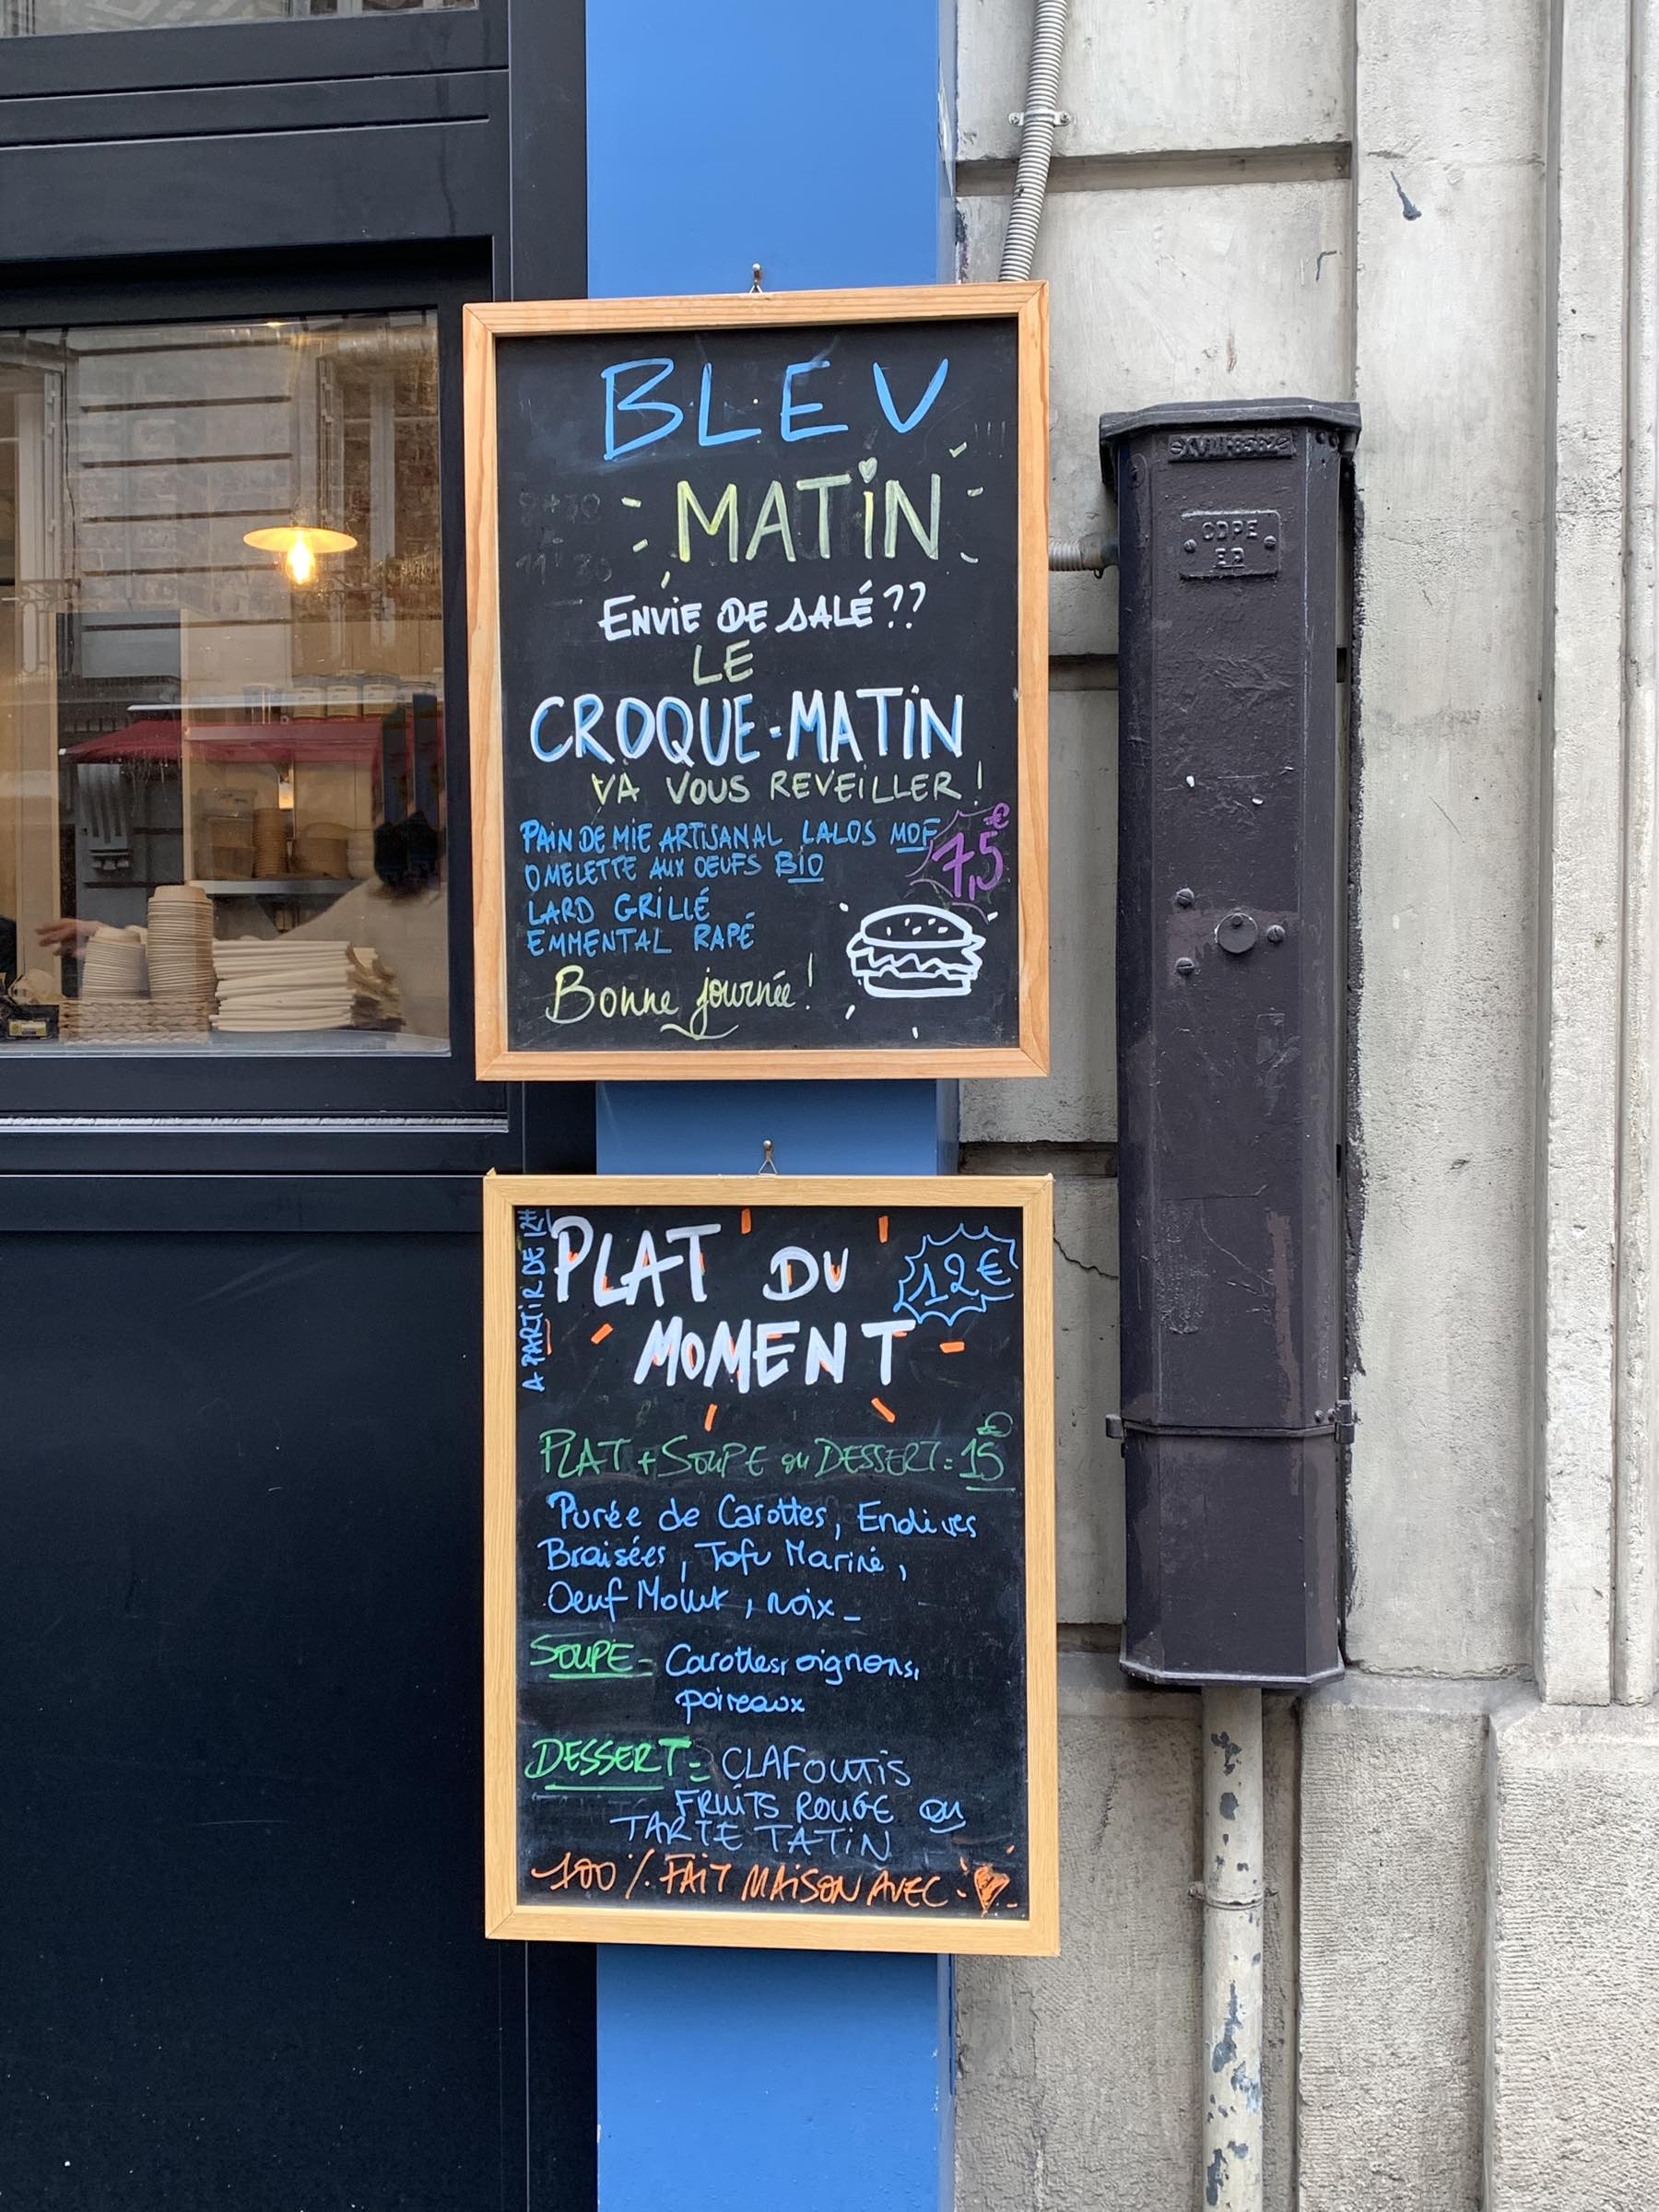 BLEU
MATiN
ENViE DE SALÉ??
LE
CROQUE-MATiN
VA VOUS REVEiLLER !
PAiN DE MiE ARTiSANAL LALOS MOF
7,5€
OMELETTE AUX OEUFS BiO
LARD GRiLLÉ
EMMENTAL RAPÉ
Bonne journée !
A PARTiR DE 12H
PLAT DU
12€
MOMENT
PLAT + SOUPE ou DESSERT = 15€
Purée de Carottes, Endives
Braisées, Tofu Mariné,
Oeuf Mollet, noix_
SOUPE = Carottes, oignons,
poireaux
DESSERT = CLAFOUTiS
FRUiTS ROUGE ou
TARTE TATiN
100% FAiT MAiSON AVEC
CDPE